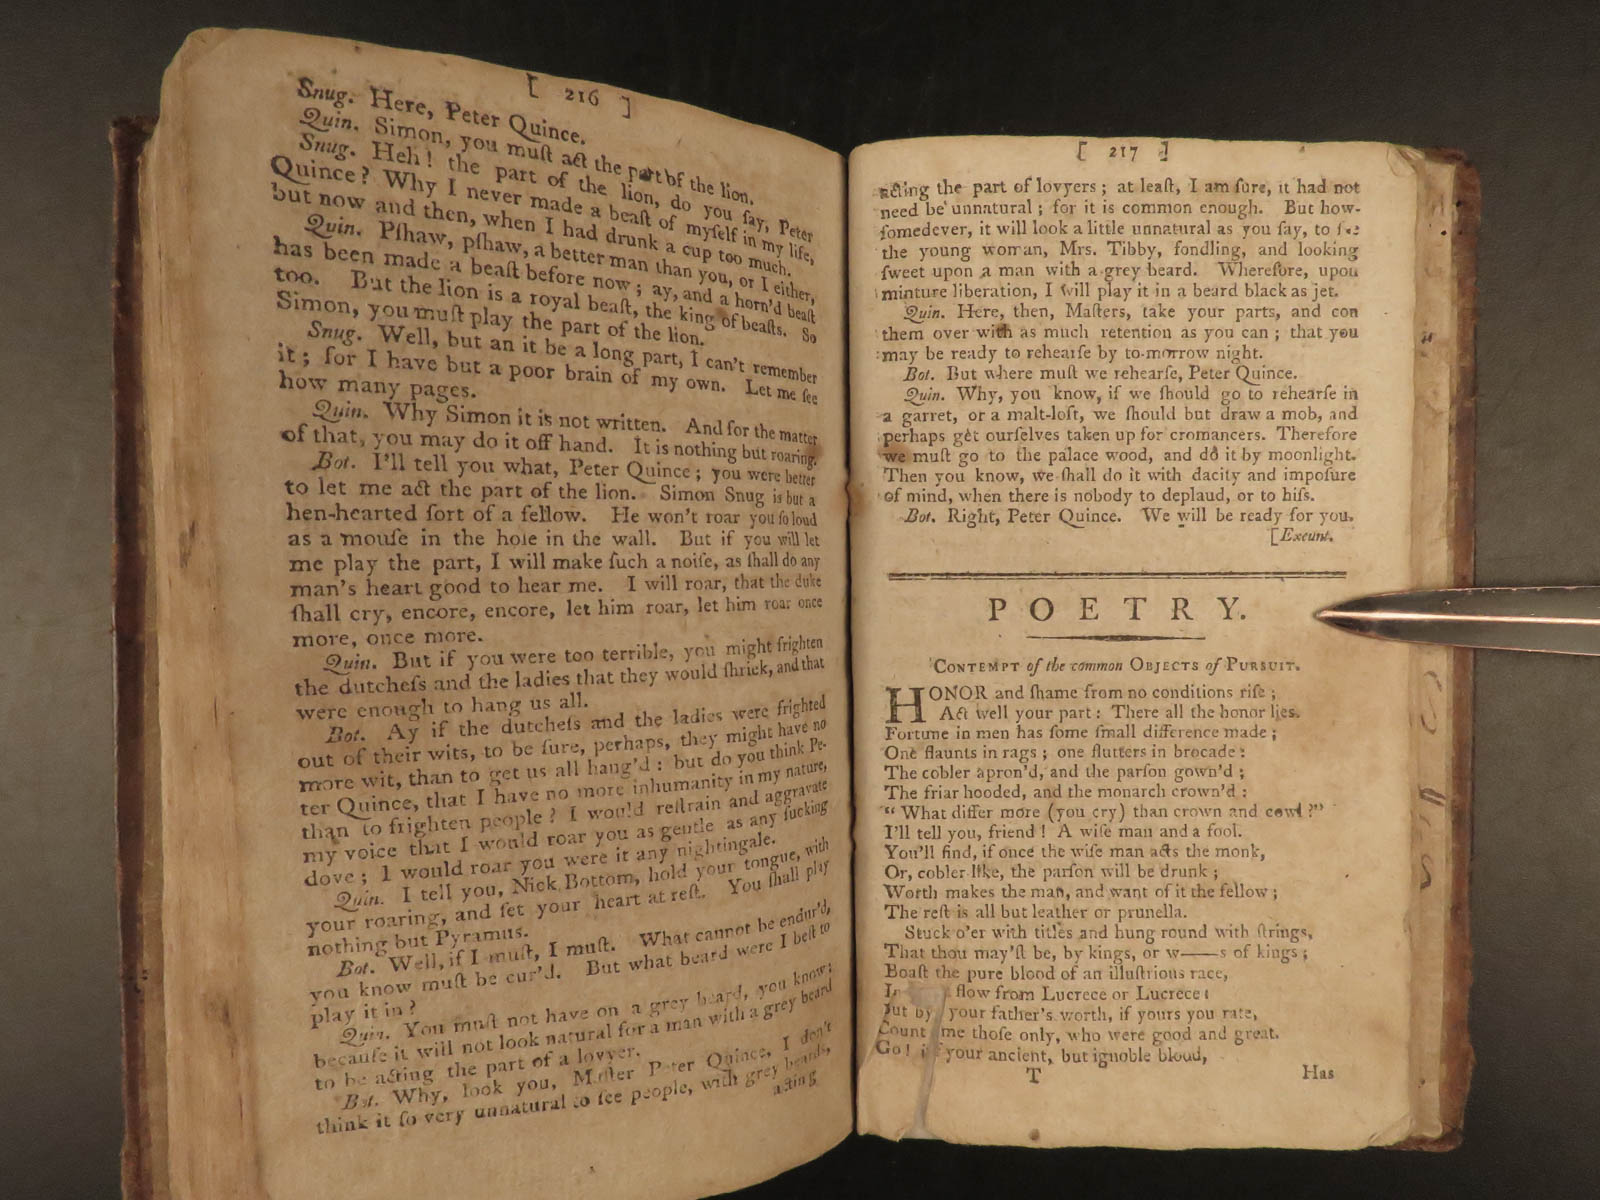 [ 216 ]
Snug. Here, Peter Quince.
Quin. Simon, you muſt act the part of the lion.
Snug. Heh! the part of the lion, do you ſay, Peter
Quince? Why I never made a beaſt of myſelf in my life,
but now and then, when I had drunk a cup too much.
Quin. Pſhaw, pſhaw, a better man than you, or I either,
has been made a beaſt before now; ay, and a horn'd beaſt
too. But the lion is a royal beaſt, the king of beaſts. So
Simon, you muſt play the part of the lion.
Snug. Well, but an it be a long part, I can't remember
it; for I have but a poor brain of my own. Let me ſee
how many pages.
Quin. Why Simon it is not written. And for the matter
of that, you may do it off hand. It is nothing but roaring.
Bot. I'll tell you what, Peter Quince; you were better
to let me act the part of the lion. Simon Snug is but a
hen-hearted ſort of a fellow. He won't roar you ſo loud
as a mouſe in the hole in the wall. But if you will let
me play the part, I will make ſuch a noiſe, as ſhall do any
man's heart good to hear me. I will roar, that the duke
ſhall cry, encore, encore, let him roar, let him roar once
more, once more.
Quin. But if you were too terrible, you might frighten
the dutcheſs and the ladies that they would ſhrick, and that
were enough to hang us all.
Bot. Ay if the dutcheſs and the ladies were frighted
out of their wits, to be ſure, perhaps, they might have no
more wit, than to get us all hang'd: but do you think Pe-
ter Quince, that I have no more inhumanity in my nature,
than to frighten people? I would reſtrain and aggravate
my voice that I would roar you as gentle as any ſucking
dove; I would roar you were it any nightingale.
Quin. I tell you, Nick Bottom, hold your tongue, with
your roaring, and ſet your heart at reſt. You ſhall play
nothing but Pyramus.
Bot. Well, if I muſt, I muſt. What cannot be endur'd,
you know muſt be cur'd. But what beard were I beſt to
play it in?
Quin. You muſt not have on a grey beard, you know;
becauſe it will not look natural for a man with a grey beard
to be acting the part of a lovyer.
Bot. Why, look you, Maſter Peter Quince, I don't
think it ſo very unnatural to ſee people, with grey beards,
acting
[ 217 ]
acting the part of lovyers; at leaſt, I am ſure, it had not
need be unnatural; for it is common enough. But how-
ſomedever, it will look a little unnatural as you ſay, to ſee
the young woman, Mrs. Tibby, fondling, and looking
ſweet upon a man with a grey beard. Wherefore, upon
minture liberation, I will play it in a beard black as jet.
Quin. Here, then, Maſters, take your parts, and con
them over with as much retention as you can; that you
may be ready to rehearſe by to-morrow night.
Bot. But where muſt we rehearſe, Peter Quince.
Quin. Why, you know, if we ſhould go to rehearſe in
a garret, or a malt-loft, we ſhould but draw a mob, and
perhaps get ourſelves taken up for cromancers. Therefore
we muſt go to the palace wood, and do it by moonlight.
Then you know, we ſhall do it with dacity and impoſure
of mind, when there is nobody to deplaud, or to hiſs.
Bot. Right, Peter Quince. We will be ready for you.
[Exeunt.
POETRY.
CONTEMPT of the common OBJECTS of PURSUIT.
HONOR and ſhame from no conditions riſe;
Act well your part: There all the honor lies.
Fortune in men has ſome ſmall difference made;
One flaunts in rags; one flutters in brocade:
The cobler apron'd, and the parſon gown'd;
The friar hooded, and the monarch crown'd:
“ What differ more (you cry) than crown and cowl?”
I'll tell you, friend! A wiſe man and a fool.
You'll find, if once the wiſe man acts the monk,
Or, cobler like, the parſon will be drunk;
Worth makes the man, and want of it the fellow;
The reſt is all but leather or prunella.
Stuck o'er with titles and hung round with ſtrings,
That thou may'ſt be, by kings, or w——s of kings;
Boaſt the pure blood of an illuſtrious race,
flow from Lucrece or Lucrece:
But by your father's worth, if yours you rate,
Count me thoſe only, who were good and great.
Go! if your ancient, but ignoble blood,
T
Has